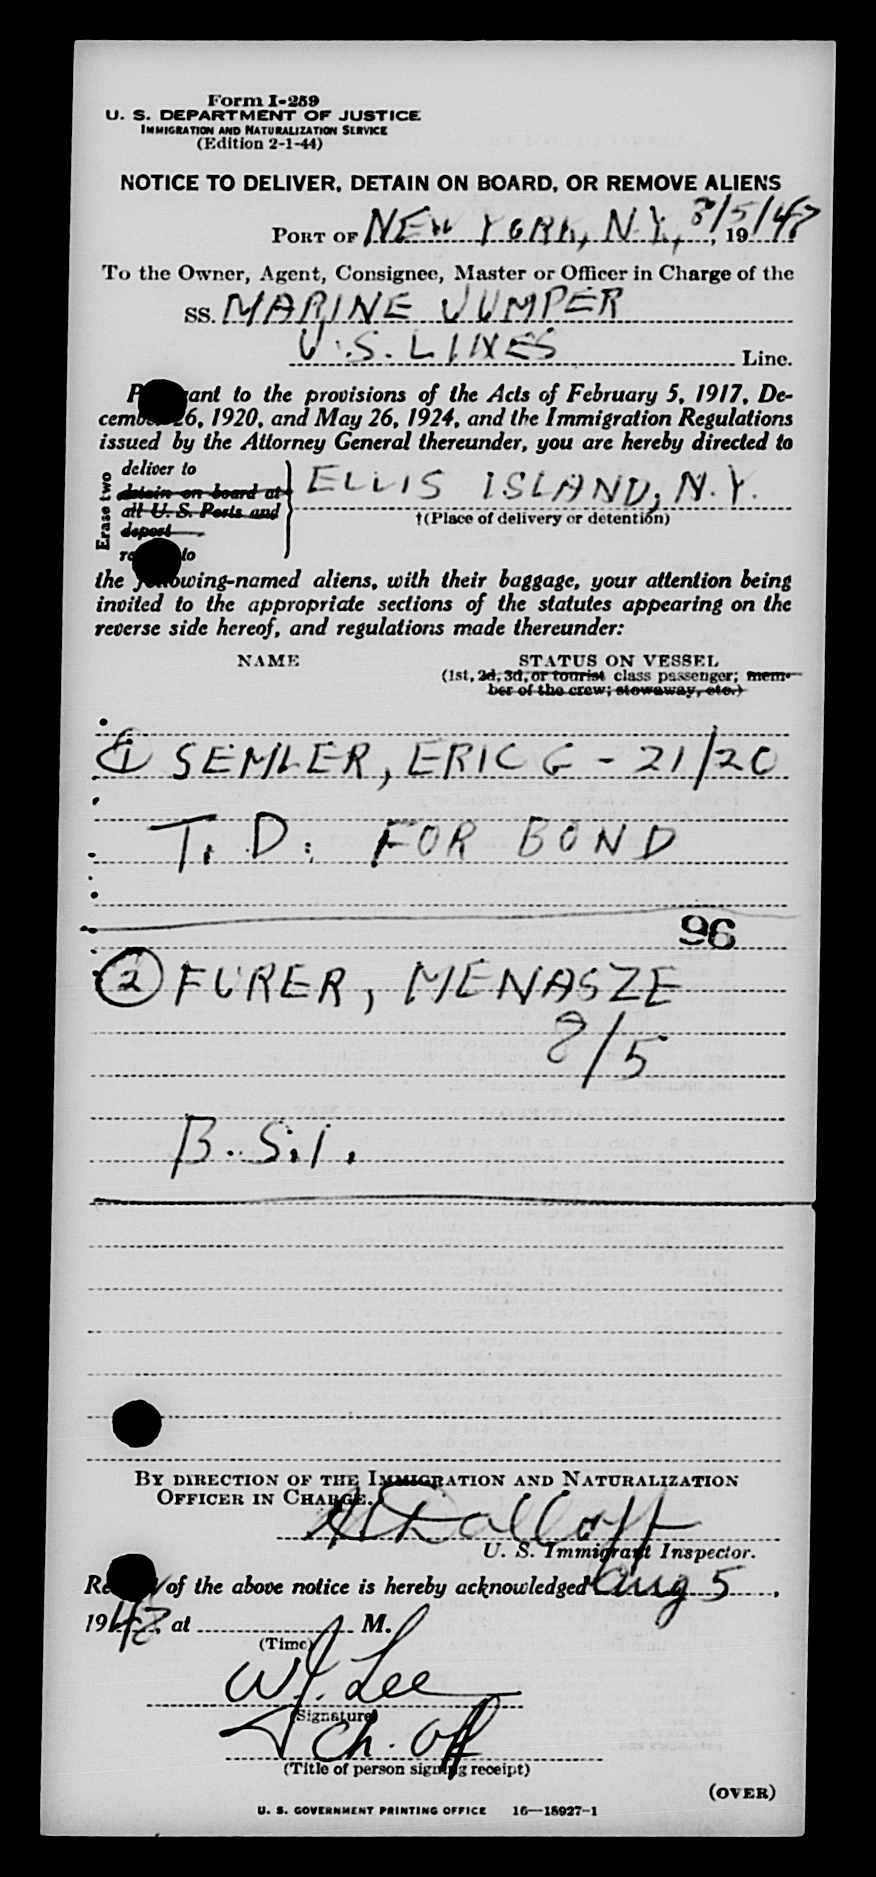 Form I-259
U. S. DEPARTMENT OF JUSTICE
IMMIGRATION AND NATURALIZATION SERVICE
(Edition 2-1-44)
NOTICE TO DELIVER, DETAIN ON BOARD, OR REMOVE ALIENS
PORT OF NEW YORK, N.Y., 8/5/48, 19
To the Owner, Agent, Consignee, Master or Officer in Charge of the
SS. MARINE JUMPER
U.S. LINES Line.
P ant to the provisions of the Acts of February 5, 1917, De-
cember 26, 1920, and May 26, 1924, and the Immigration Regulations
issued by the Attorney General thereunder, you are hereby directed to
Erase two
deliver to
detain on board at
all U. S. Ports and
deport
re to
ELLIS ISLAND, N.Y.
†(Place of delivery or detention)
the following-named aliens, with their baggage, your attention being
invited to the appropriate sections of the statutes appearing on the
reverse side hereof, and regulations made thereunder:
NAME STATUS ON VESSEL
(1st, 2d, 3d, or tourist class passenger; mem-
ber of the crew; stowaway, etc.)
1 SEMLER, ERIC G - 21/20
T. D. FOR BOND
96
2 FURER, MENASZE
8/5
B.S.I.
BY DIRECTION OF THE IMMIGRATION AND NATURALIZATION
OFFICER IN CHARGE.
U. S. Immigrant Inspector.
Re of the above notice is hereby acknowledged Aug 5,
1948, at M.
(Time)
W. J. Lee
(Signature)
Ch. Off
(Title of person signing receipt)
(OVER)
U. S. GOVERNMENT PRINTING OFFICE 16—18927-1